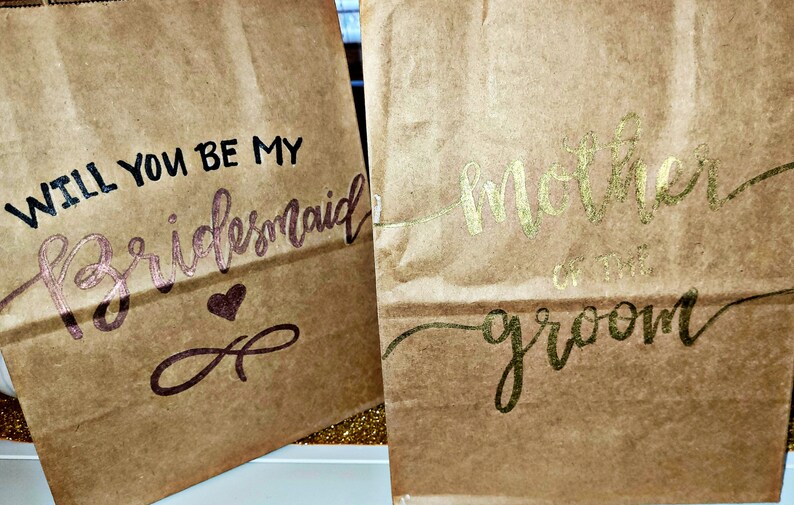 WILL YOU BE MY
Bridesmaid
Mother
OF THE
groom